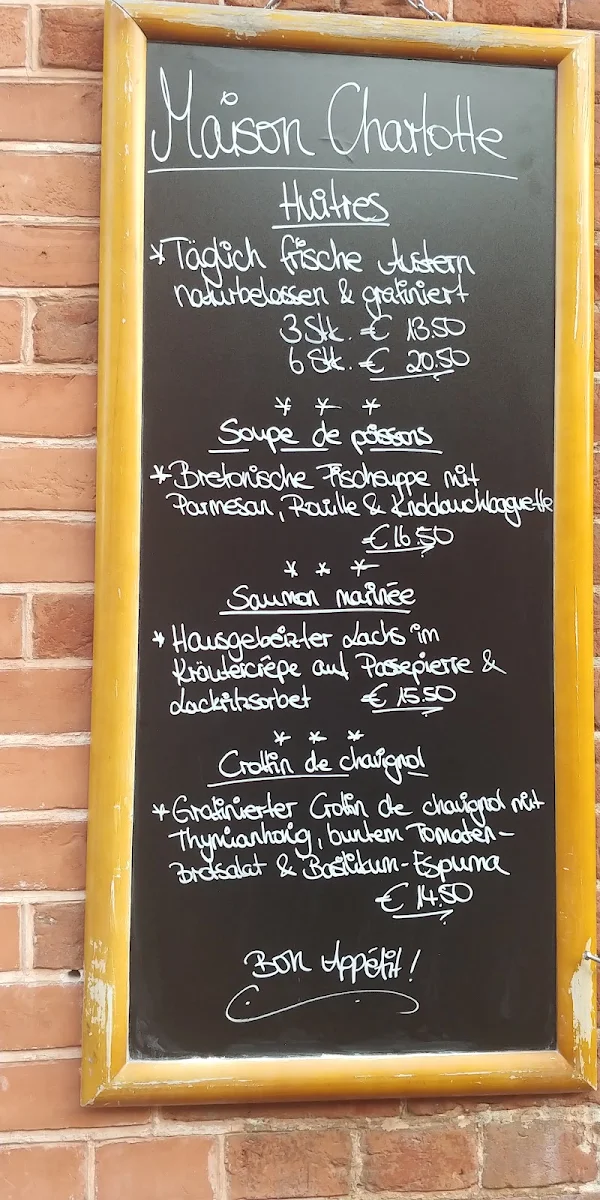 Maison Charlotte
Huîtres
* Täglich frische Austern
naturbelassen & gratiniert
3 Stk. € 13.50
6 Stk. € 20.50
* * *
Soupe de poissons
* Bretonische Fischsuppe mit
Parmesan, Rouille & Knoblauchbaguette
€ 16.50
* * *
Saumon marinée
* Hausgebeizter Lachs im
Kräutercrêpe auf Passepierre &
Lackritzsorbet € 15.50
* * *
Crottin de chavignol
* Gratinierter Crottin de chavignol mit
Thymianhonig, buntem Tomaten-
Brotsalat & Basilikum-Espuma
€ 14.50
Bon Appétit!